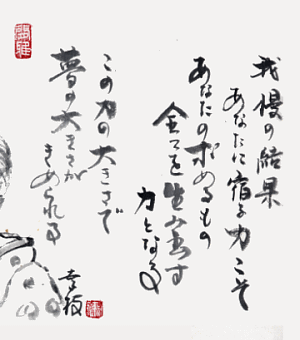 我慢の結果
あなたに宿る力こそ
あなたの求めるもの
全てを生み出す
力となる
この力の大きさで
夢の大きさが
きめられる